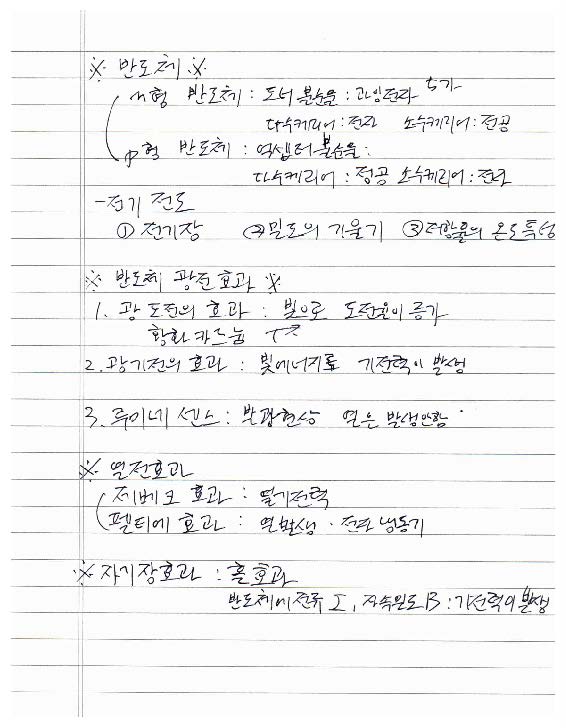 ※ 반도체 ※
n형 반도체 : 도너 불순물 : 과잉전자 5가
다수캐리어 : 전자 소수캐리어 : 정공
p형 반도체 : 억셉터 불순물 :
다수캐리어 : 정공 소수캐리어 : 전자
- 전기 전도
① 전기장 ② 밀도의 기울기 ③ 저항률의 온도특성
※ 반도체 광전효과 ※
1. 광 도전의 효과 : 빛으로 도전율이 증가
황화카드뮴
2. 광기전의 효과 : 빛에너지로 기전력이 발생
3. 루미네센스 : 발광현상 열은 발생안함
※ 열전효과
제베크 효과 : 열기전력
펠티에 효과 : 열발생 · 전자 냉동기
※ 자기장효과 : 홀효과
반도체에 전류 I, 자속밀도 B : 기전력이 발생